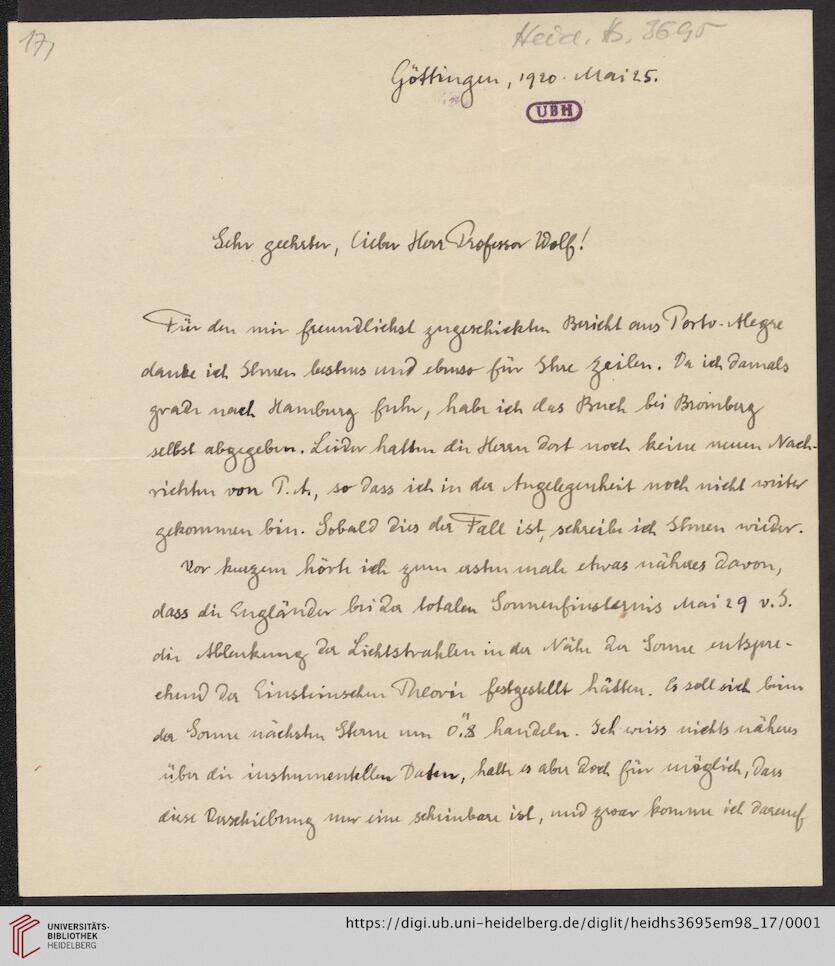 17,
Heid. Hs. 3695
Göttingen, 1920. Mai 25.
UBH
Sehr geehrter, lieber Herr Professor Wolf!
Für den mir freundlichst zugeschickten Bericht aus Porto-Alegre
danke ich Ihnen bestens und ebenso für Ihre Zeilen. Da ich damals
grade nach Hamburg fuhr, habe ich das Buch bei Bromberg
selbst abgegeben. Leider hatten die Herrn dort noch keine neuen Nach-
richten von P. A., so dass ich in der Angelegenheit noch nicht weiter
gekommen bin. Sobald dies der Fall ist, schreibe ich Ihnen wieder.
Vor kurzem hörte ich zum ersten male etwas näheres davon,
dass die Engländer bei der totalen Sonnenfinsternis Mai 29 v. J.
die Ablenkung der Lichtstrahlen in der Nähe der Sonne entspre-
chend der Einsteinschen Theorie festgestellt hätten. Es soll sich beim
der Sonne nächsten Sterne um 0."8 handeln. Ich weiss nichts näheres
über die instrumentellen Daten, halte es aber doch für möglich, dass
diese Verschiebung nur eine scheinbare ist, und zwar komme ich darauf
UNIVERSITÄTS-
BIBLIOTHEK
HEIDELBERG
https://digi.ub.uni-heidelberg.de/diglit/heidhs3695em98_17/0001